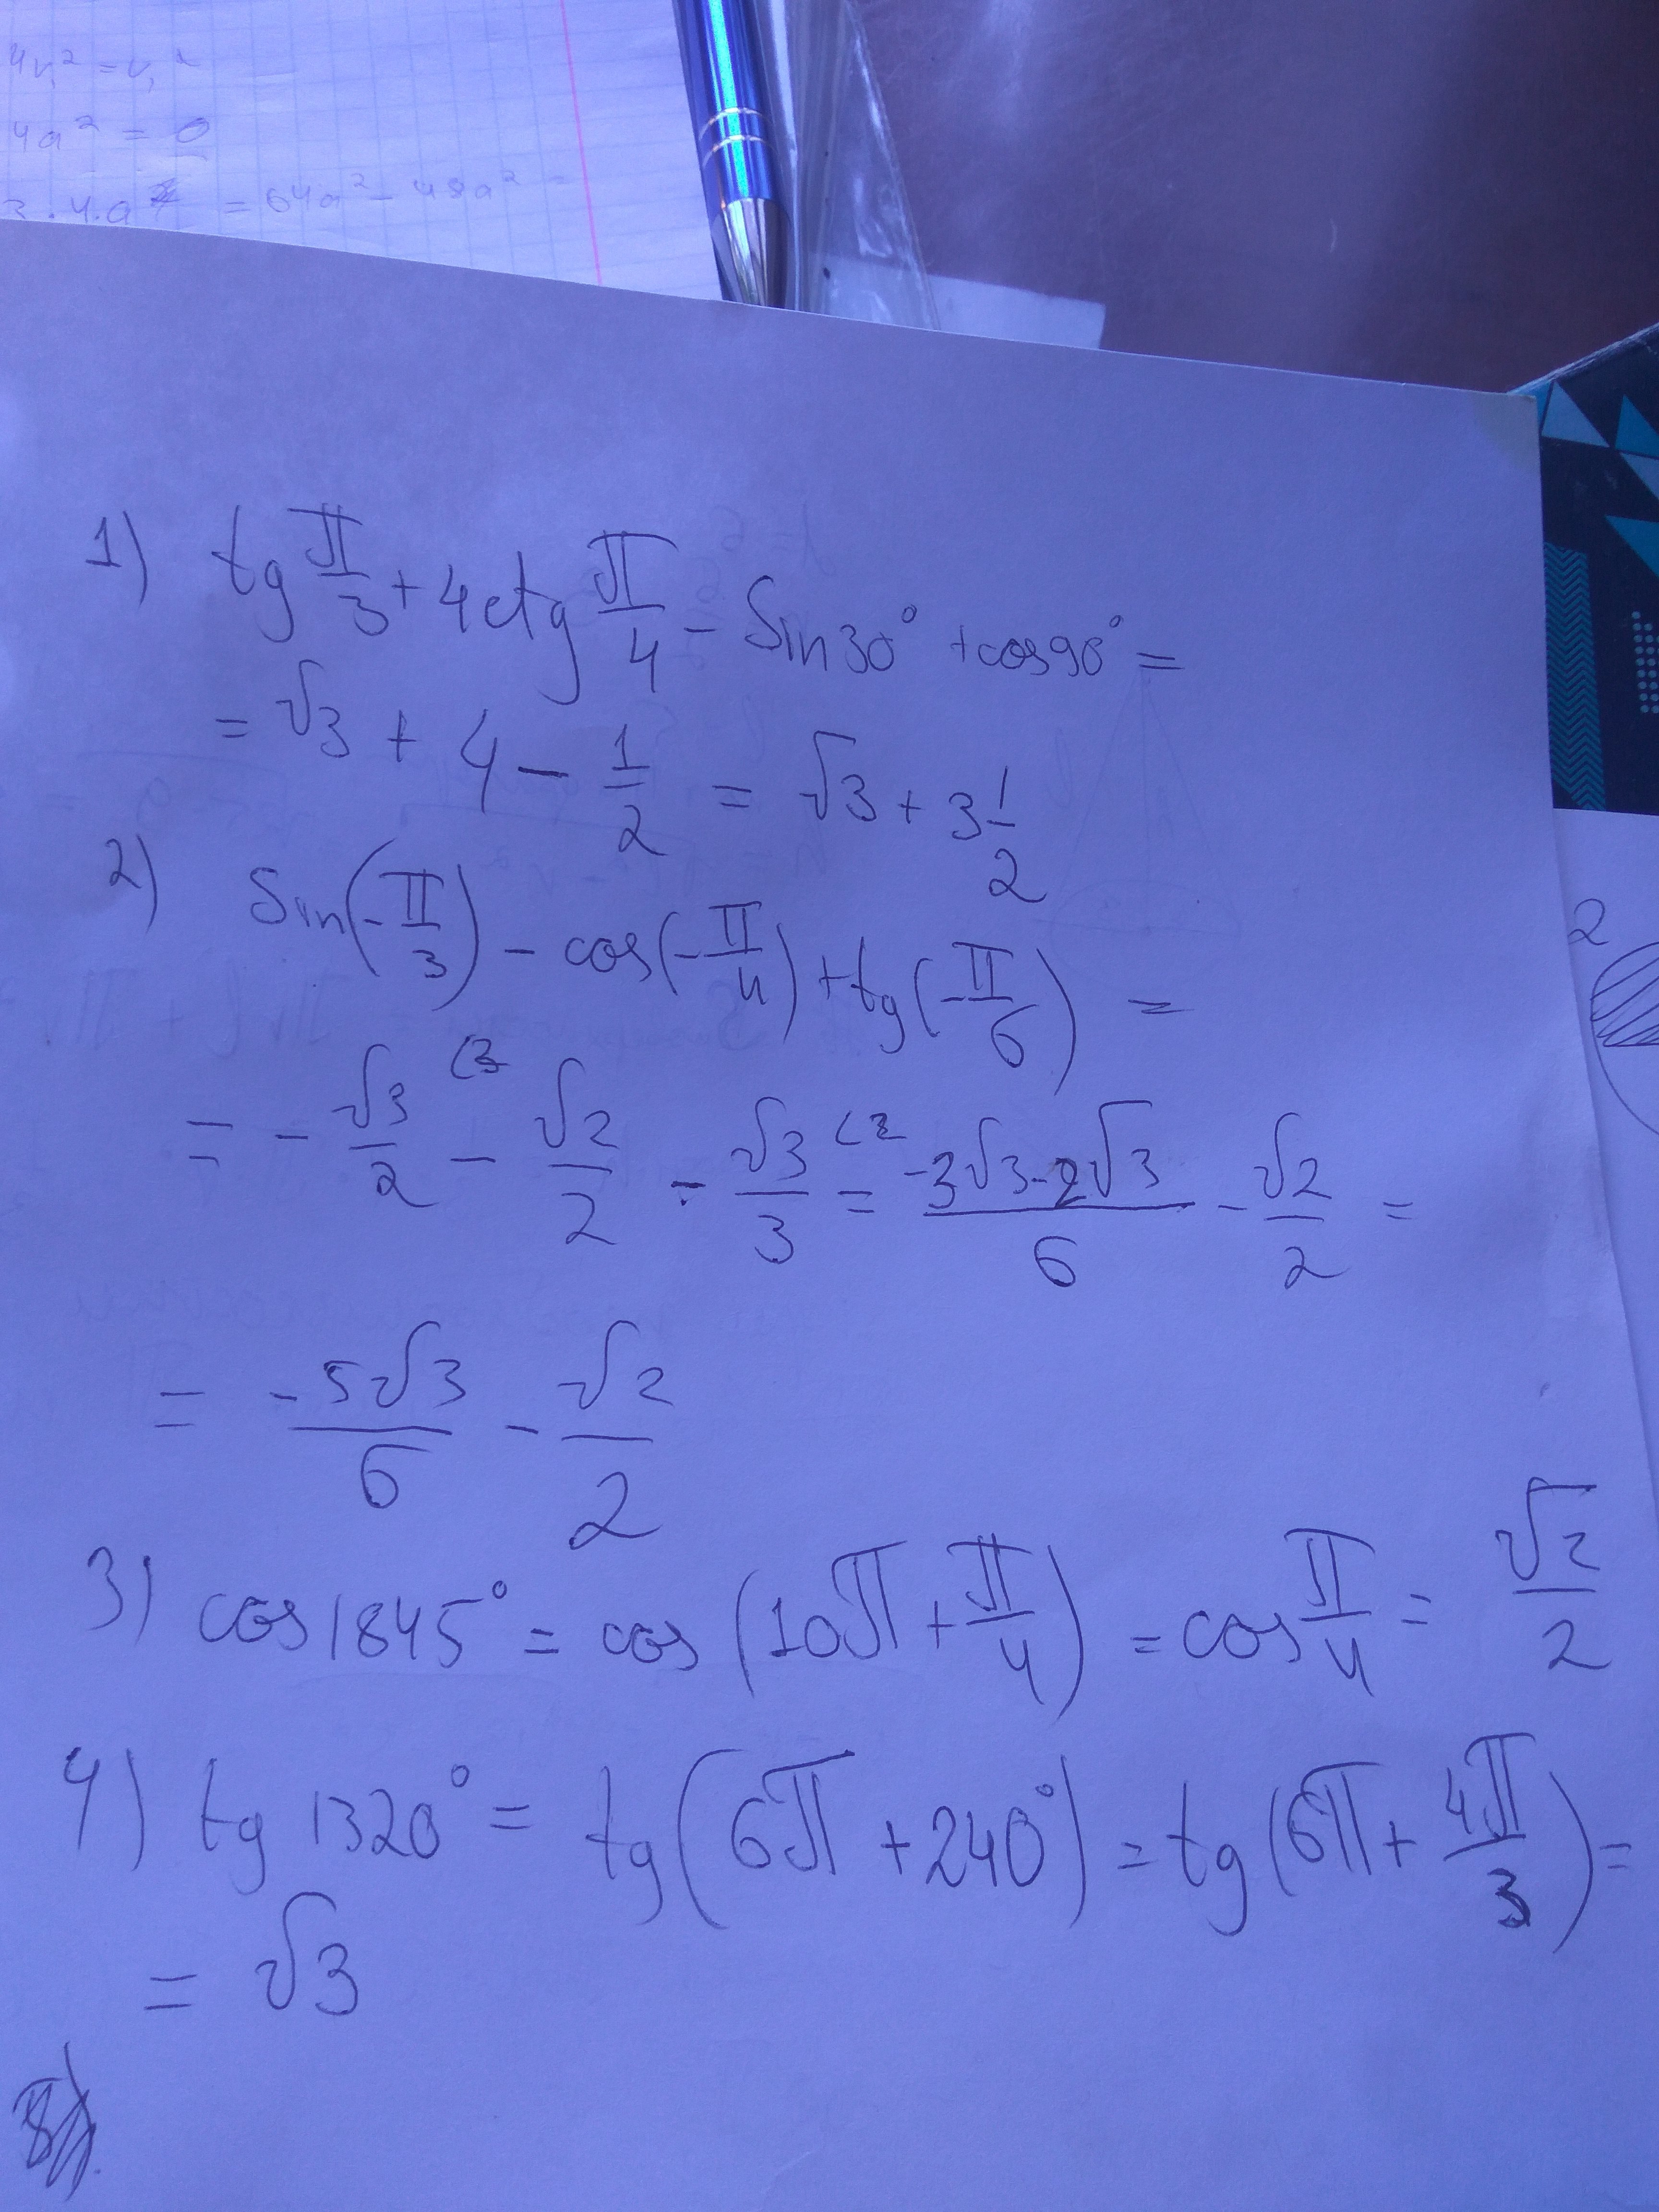 4v₁² = v₁²
4a² = 0
3·4·a² = 64a² - 48a² =
1) tg π/3 + 4ctg π/4 - Sin30° + cos90° =
= √3 + 4 - 1/2 = √3 + 3 1/2
2) Sin(-π/3) - cos(-π/4) + tg(-π/6) =
= - √3/2 (3 - √2/2 - √3/3 (2 = (-3√3-2√3)/6 - √2/2 =
= -5√3/6 - √2/2
3) cos1845° = cos(10π + π/4) = cos π/4 = √2/2
4) tg 1320° = tg(6π + 240°) = tg(6π + 4π/3) =
= √3
2